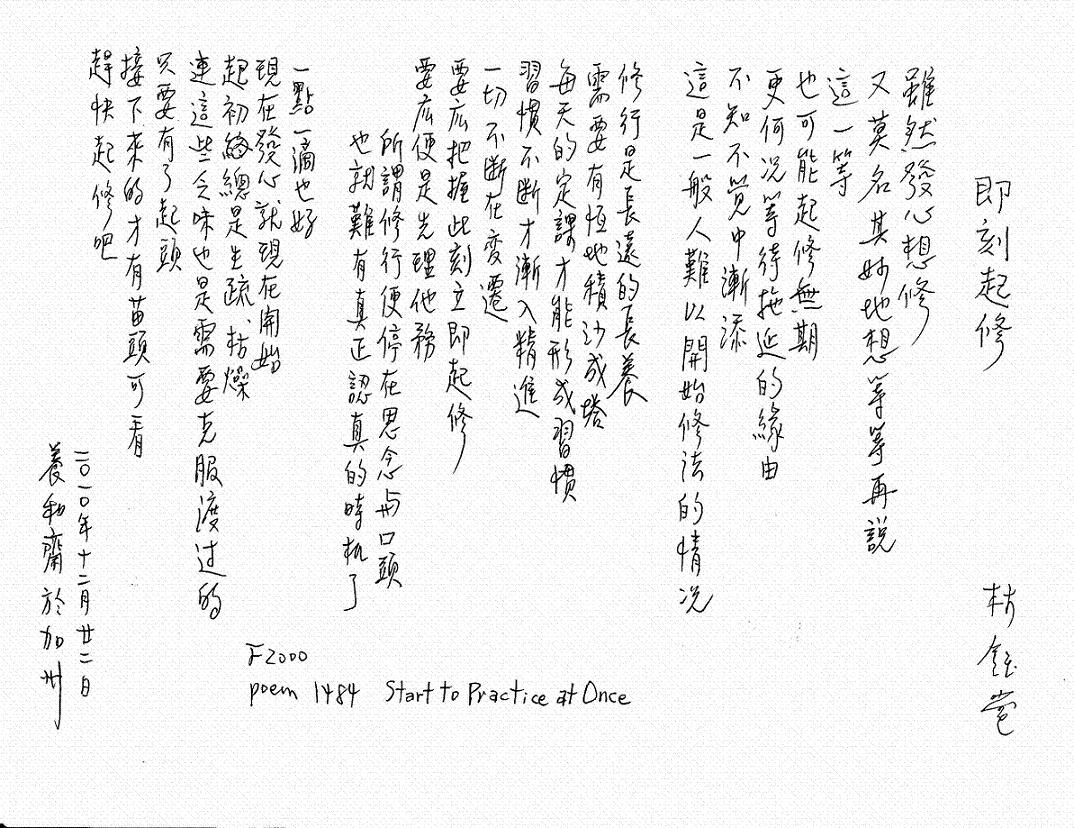 即刻起修
林鈺堂
雖然發心想修
又莫名其妙地想等等再說
這一等
也可能起修無期
更何況等待拖延的緣由
不知不覺中漸添
這是一般人難以開始修法的情況
修行是長遠的長養
需要有恆地積沙成塔
每天的定課才能形成習慣
習慣不斷才漸入精進
一切不断在变遷
要庅把握此刻立即起修
要庅便是先理他務
所謂修行便停在思念与口頭
也就難有真正認真的時机了
一點一滴也好
現在發心就現在開始
起初總是生疏、枯燥
連這些令味也是需要克服渡过的
只要有了起頭
接下來的才有苗頭可看
趕快起修吧
二〇一〇年十二月廿二日
養和齋於加州
F2000
poem 1484 Start to Practice at Once